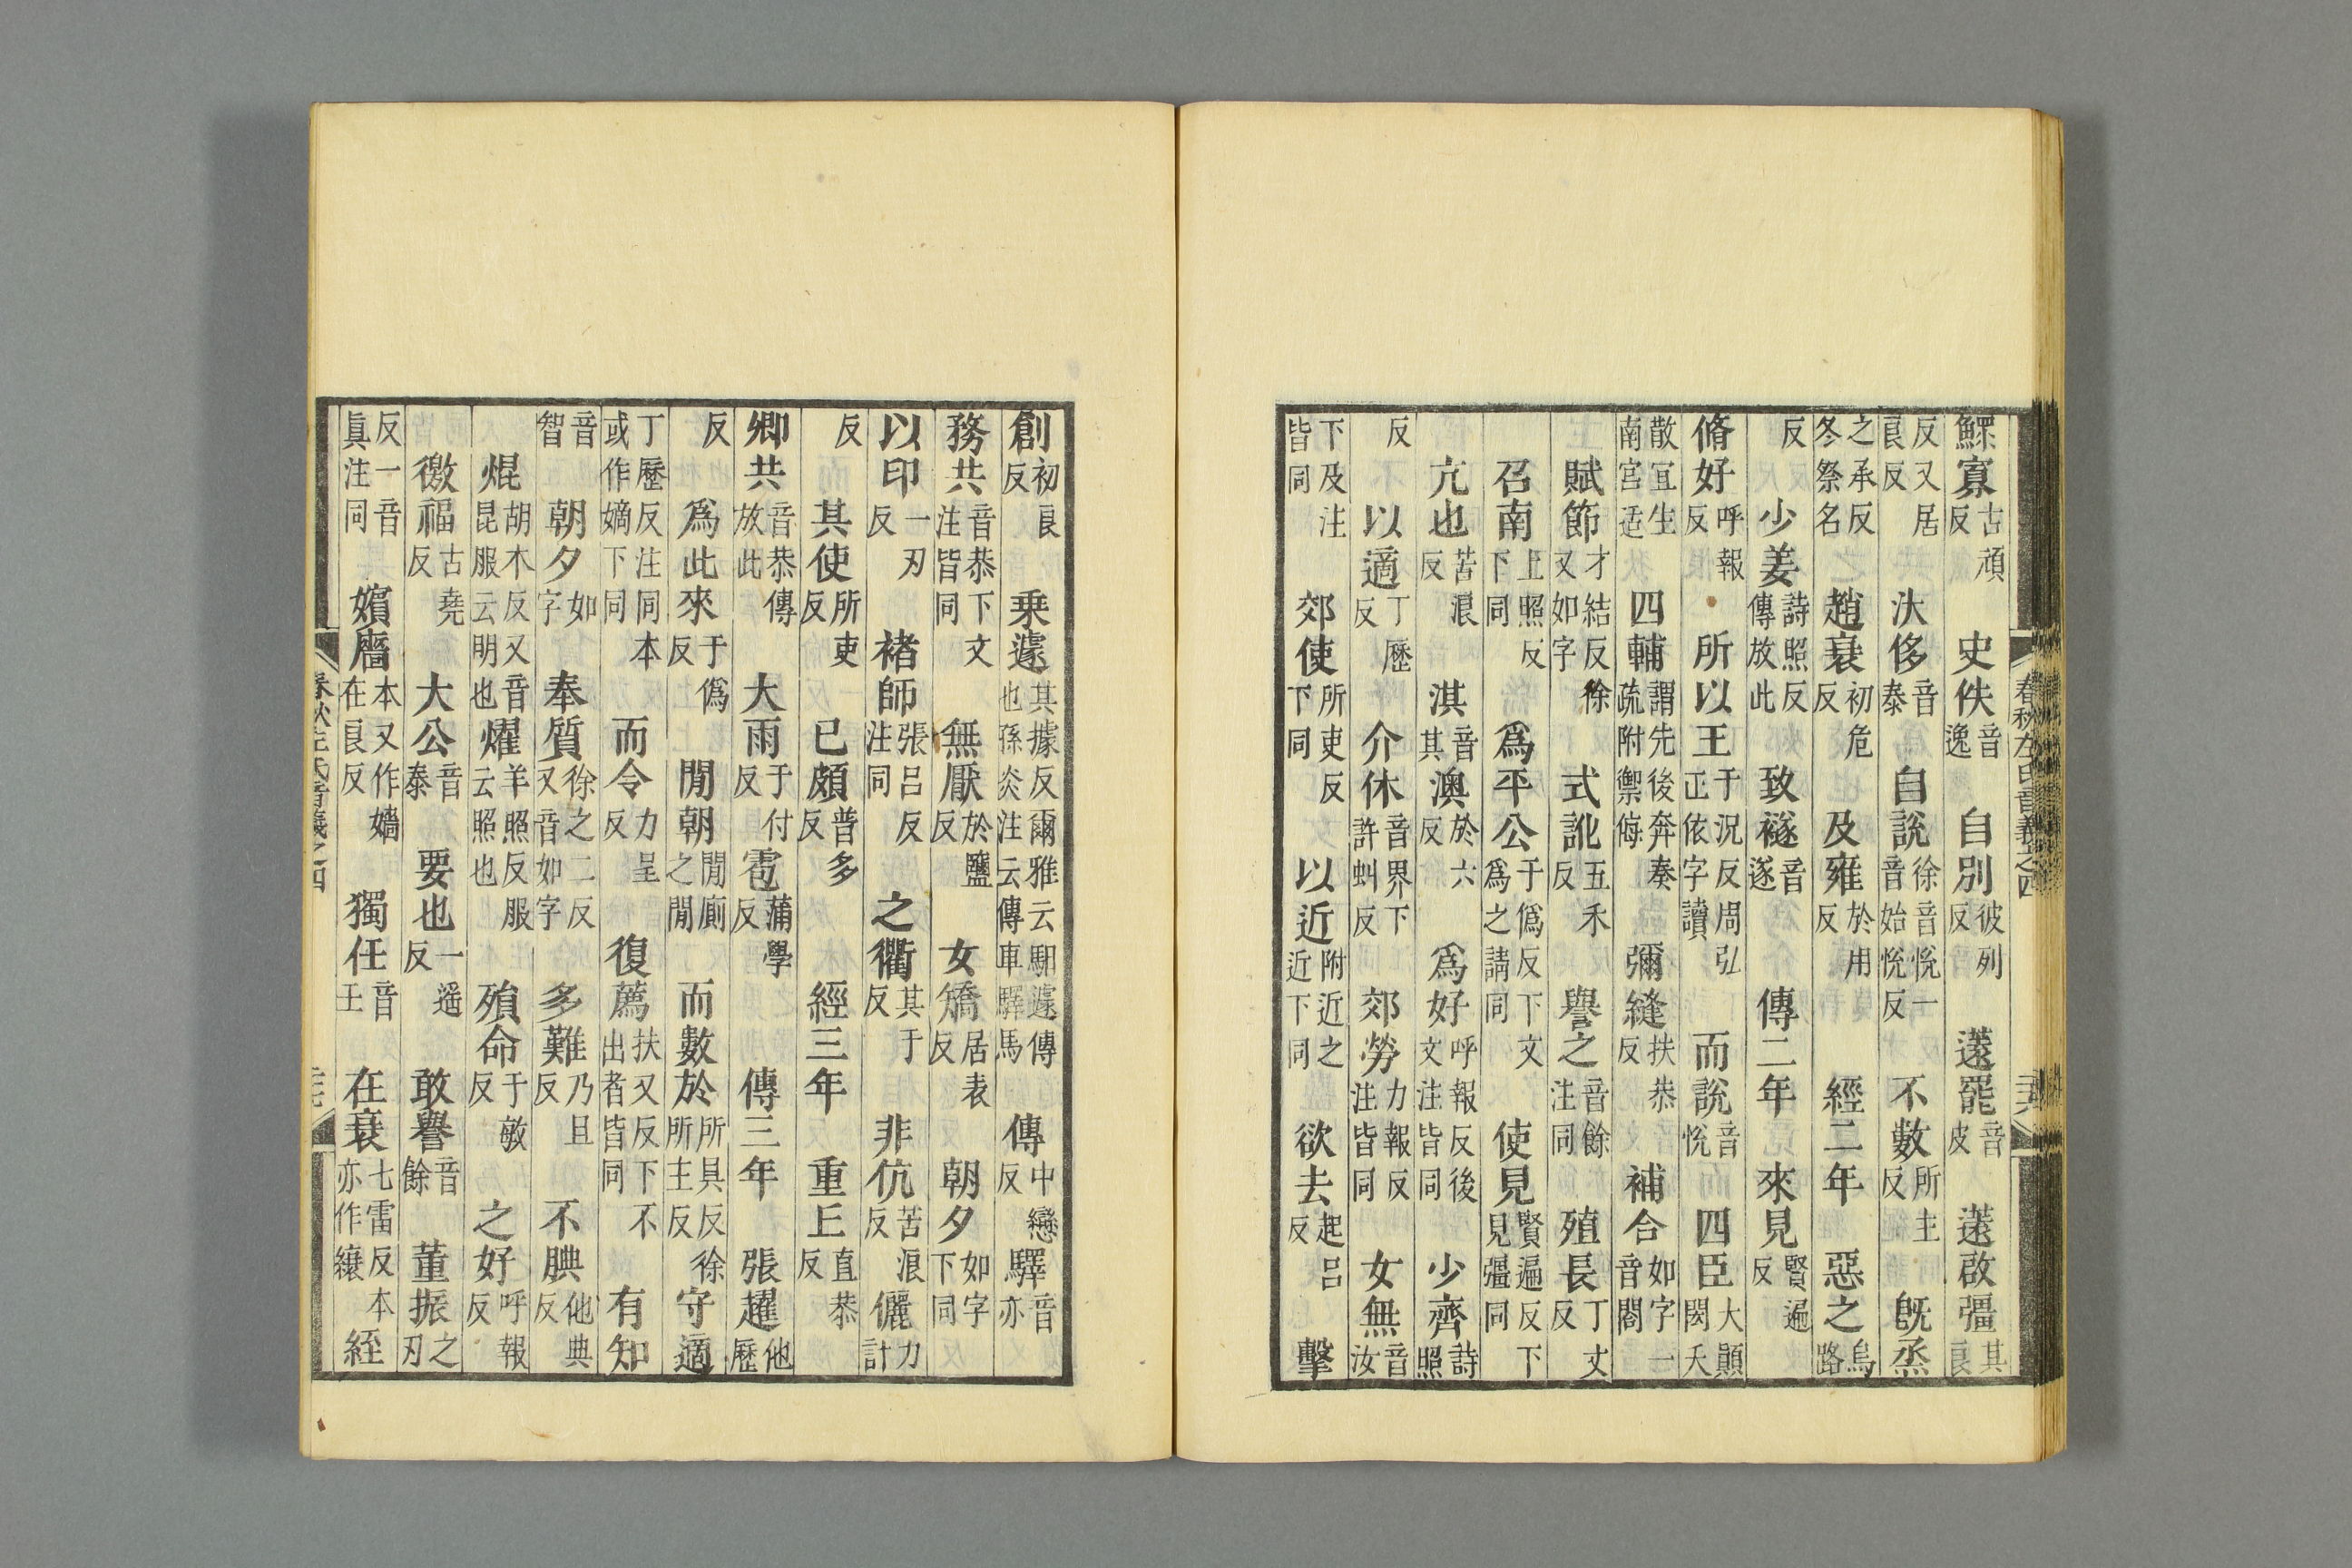 春秋左氏音義之四
鰥寡古頑反 史佚音逸 自別彼列反 薳罷音皮 薳啟彊其良
反又居良反 汏侈音泰 自說徐音悅一音始悅反 不數所主反 旣烝
之承反冬祭名 趙衰初危反 及雍於用反 經二年 惡之烏路
反 少姜詩照反傳放此 致襚音遂 傳二年 來見賢遍反
脩好呼報反 所以王于況反周弘正依字讀 而說音悅 四臣大顛閎夭
散宜生南宮适 四輔謂先後奔奏疏附禦侮 彌縫扶恭反 補合如字一音閤
賦節才結反徐又如字 式訛五禾反 譽之音餘注同 殖長丁丈反
召南上照反下同 爲平公于僞反下文爲之請同 使見賢遍反下見彊同
亢也苦浪反 淇音其 澳於六反 爲好呼報反後文注皆同 少齊詩照
反 以適丁歷反 介休音界下許虯反 郊勞力報反注皆同 女無音汝
下及注皆同 郊使所吏反下同 以近附近之近下同 欲去起呂反 擊
創初良反 乘遽其據反爾雅云馹遽傳也孫炎注云傳車驛馬 傳中戀反 驛音亦
務共音恭下文注皆同 無厭於鹽反 女矯居表反 朝夕如字下同
以印一刃反 褚師張呂反注同 之衢其于反 非伉苦浪反 儷力計
反 其使所吏反 已頗普多反 經三年 重丘直恭反
卿共音恭傳放此 大雨于付反 雹蒲學反 傳三年 張趯他歷
反 爲此來于僞反 閒朝閒廁之閒 而數於所具反徐所主反 守適
丁歷反注同本或作嫡下同 而令力呈反 復薦扶又反下不出者皆同 有知
音智 朝夕如字 奉質徐之二反又音如字 多難乃且反 不腆他典反
焜胡本反又音昆服云明也 燿羊照反服云照也 殞命于敏反 之好呼報反
徼福古堯反 大公音泰 要也一遥反 敢譽音餘 董振之刃
反一音眞注同 嬪廧本又作嬙在良反 獨任音壬 在衰七雷反本亦作縗 絰
春秋左氏音義之四